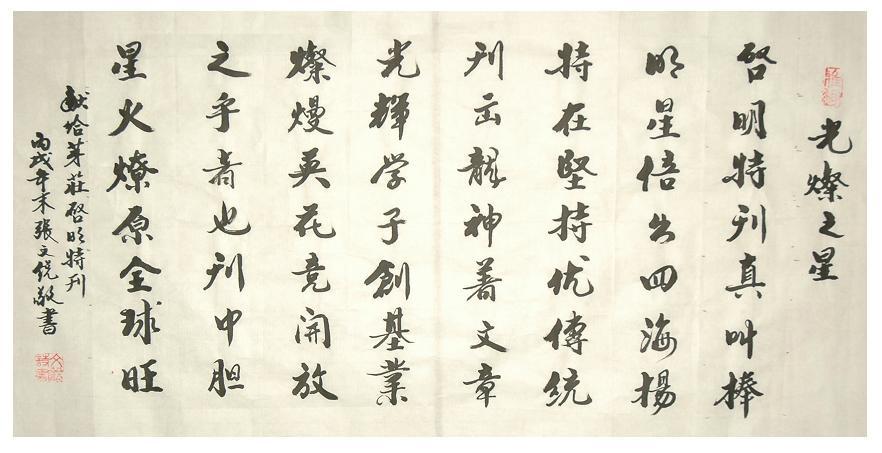 光燦之星
啓明特刊真叫棒
明星倍出四海揚
特在堅持优傳統
刊出龍神著文章
光輝学子創基業
燦熳英花竟開放
之乎者也刊中胆
星火燎原全球旺
献给芽莊啓明特刊
丙戌年末張文悦敬書